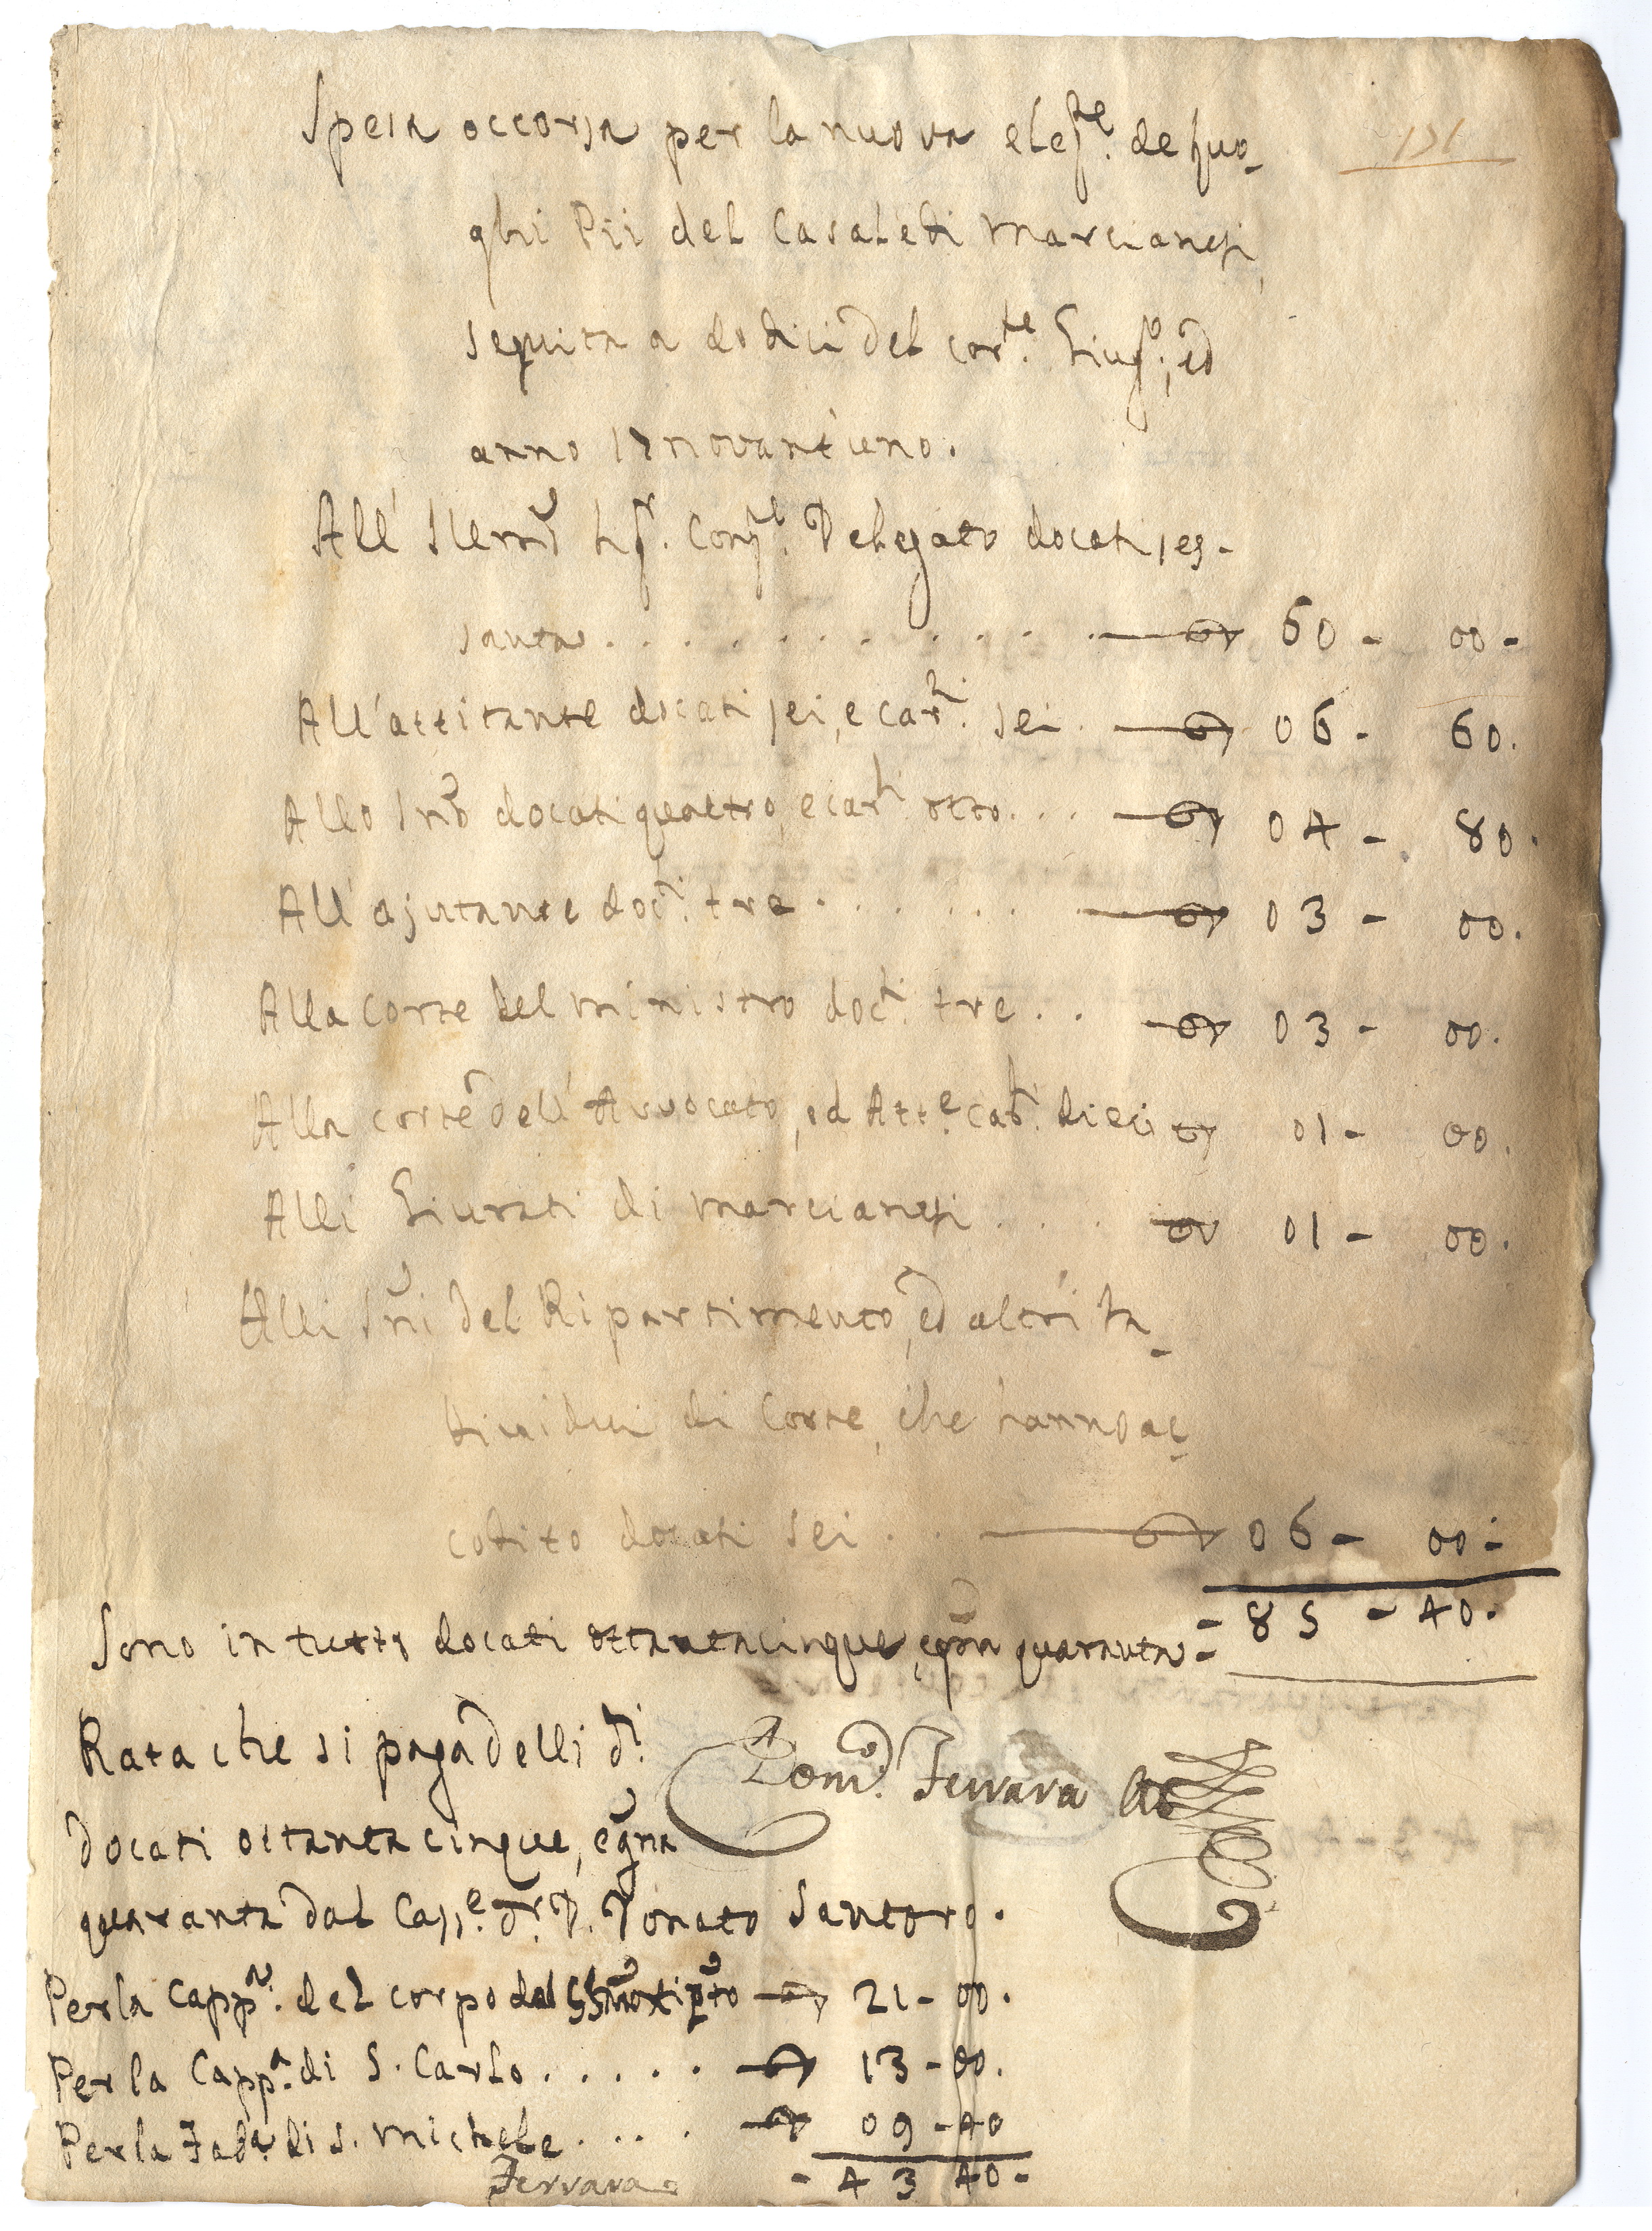 151
Spesa occorsa per la nuova elez.ne de luo-
ghi Pii del Casale di Marcianesi,
seguita a dodici del cor.te Giug.o, ed
anno 17novant'uno.
All' Illmo Sig.r Conz.e Delegato docati ses-
santa . . . . . . . . . . 60 - 00 -
All'attitante docati sei, e car.ni sei . 06 - 60.
Allo Scno docati quattro, e car.ni otto . . . 04 - 80.
All'ajutante doc.ti tre . . . . . . 03 - 00.
Alla Corte del Ministro doc.ti tre . . 03 - 00.
Alla corte dell'Avvocato, ed Att.e car.ni dieci 01 - 00.
Alli Giurati di Marcianesi . . . 01 - 00.
Alli Sri del Ripartimento, ed altri In-
dividui di Corte, che hanno ac-
codito docati sei . . 06 - 00 -
Sono in tutto docati ottantacinque, e gna quaranta = - 85 - 40.
Rata che si paga delli d.i
Dom.o Ferrara Att
docati ottantacinque, e gna
quaranta dal Capp.e D.r D. Donato Santoro.
Per la Capp.a del corpo del SSmo 21 - 00.
Per la Capp.a di S. Carlo . . . . . 13 - 00.
Per la di S. Michele . . . . 09 - 40
Ferrara - 43 40 -